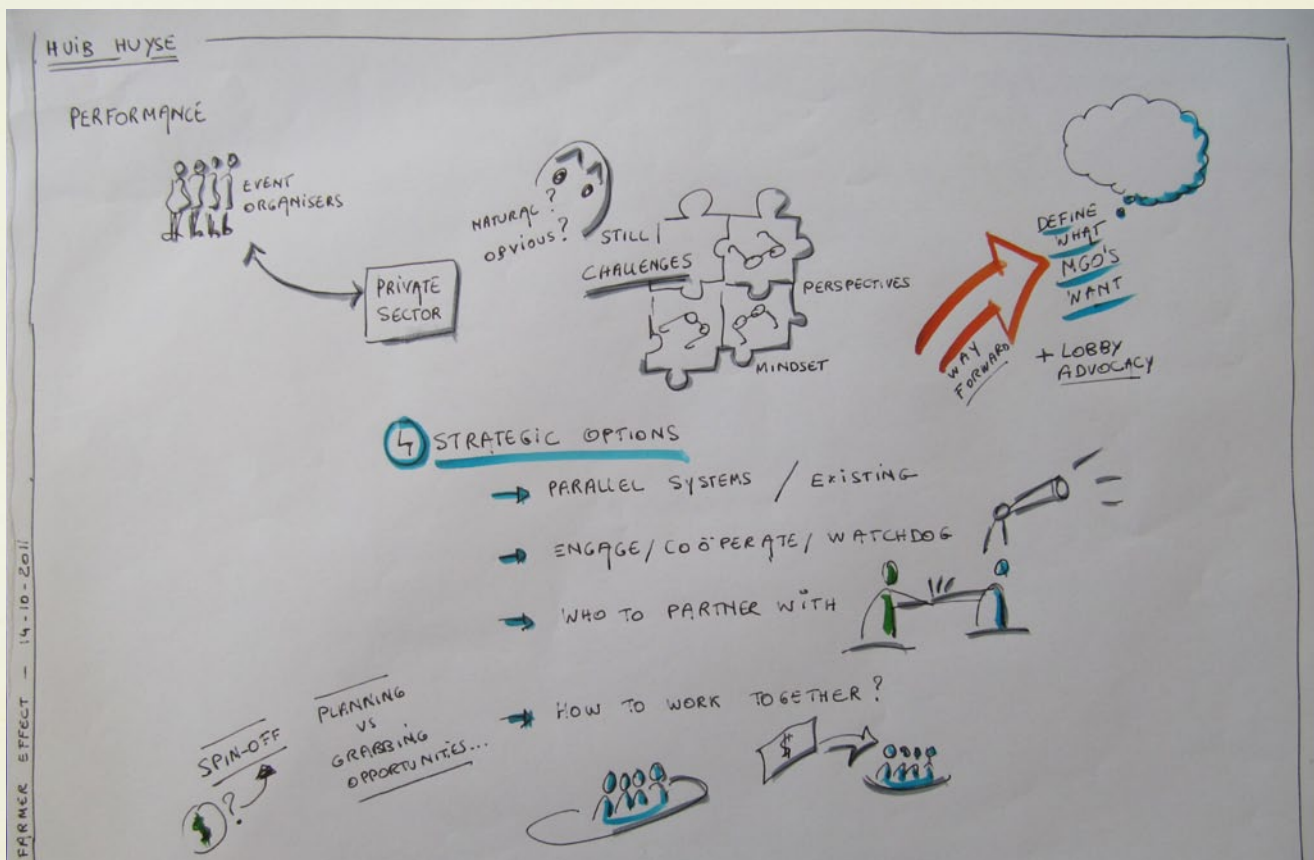 HUIB HUYSE
PERFORMANCE
EVENT
ORGANISERS
PRIVATE
SECTOR
NATURAL?
OBVIOUS?
STILL
CHALLENGES
PERSPECTIVES
MINDSET
DEFINE
WHAT
MGO'S
WANT
WAY
FORWARD
+ LOBBY
ADVOCACY
4 STRATEGIC OPTIONS
→ PARALLEL SYSTEMS / EXISTING
→ ENGAGE/COÖPERATE/WATCHDOG
→ WHO TO PARTNER WITH
→ HOW TO WORK TOGETHER?
$
SPIN-OFF
$?
PLANNING
VS
GRABBING
OPPORTUNITIES...
FARMER EFFECT – 14-10-2011